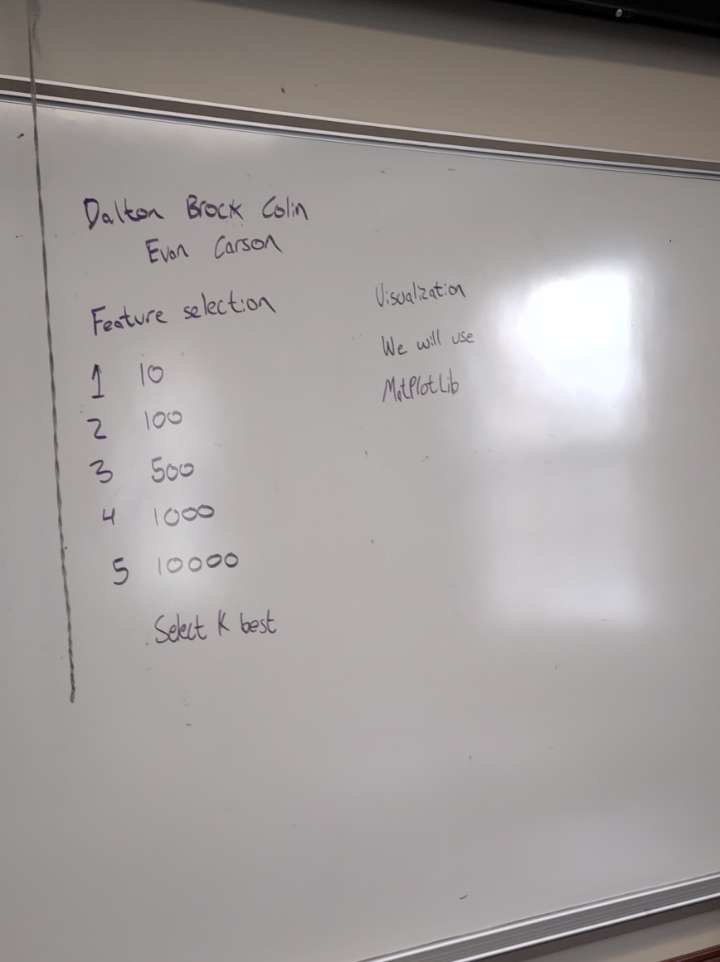 Dalton Brock Colin
Evan Carson
Feature selection
1 10
2 100
3 500
4 1000
5 10000
Select K best
Visualization
We will use
MatPlotLib